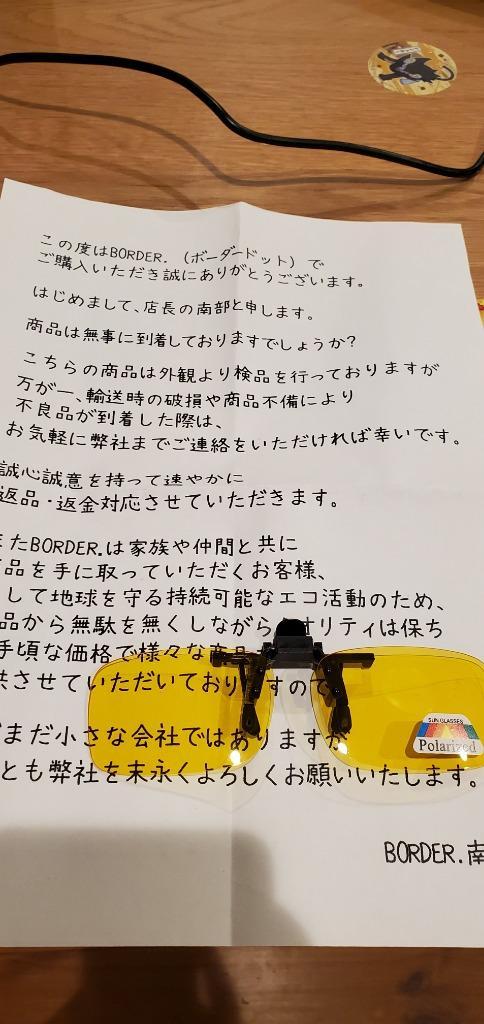 この度はBORDER.（ボーダードット）で
ご購入いただき誠にありがとうございます。
はじめまして、店長の南部と申します。
商品は無事に到着しておりますでしょうか?
こちらの商品は外観より検品を行っておりますが
万が一、輸送時の破損や商品不備により
不良品が到着した際は、
お気軽に弊社までご連絡をいただければ幸いです。
誠心誠意を持って速やかに
返品・返金対応させていただきます。
たBORDER.は家族や仲間と共に
品を手に取っていただくお客様、
して地球を守る持続可能なエコ活動のため、
品から無駄を無くしながら オリティは保ち
手頃な価格で様々な商品
供させていただいておりますので
まだ小さな会社ではありますが
とも弊社を末永くよろしくお願いいたします。
BORDER.南
SUN GLASSES
Polarized